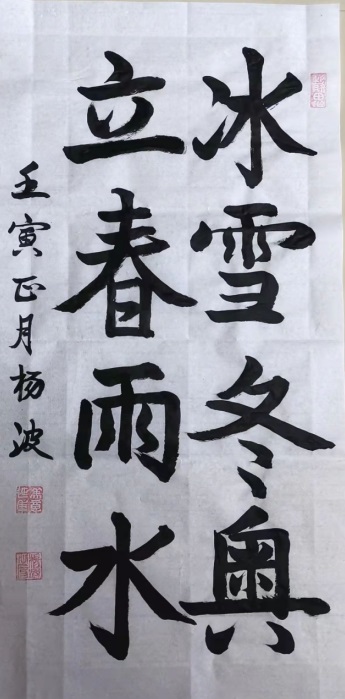 冰雪冬奥
立春雨水
壬寅正月杨波